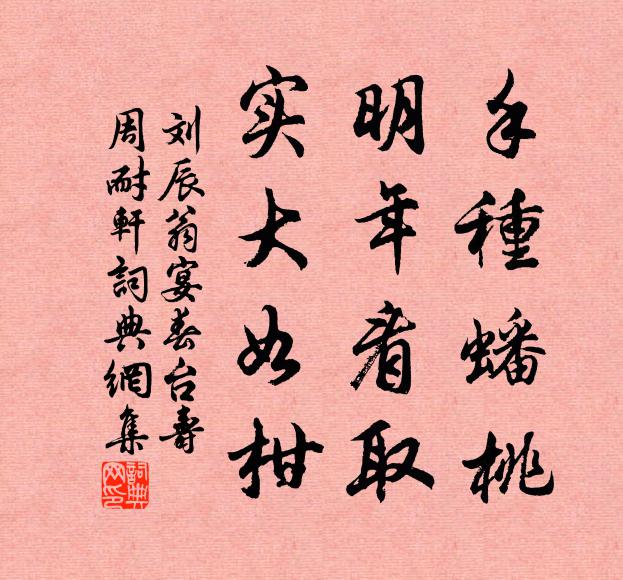 手種蟠桃
明年看取
实大如柑
刘辰翁宴春台壽
周耐軒詞典網集
詞典
网印